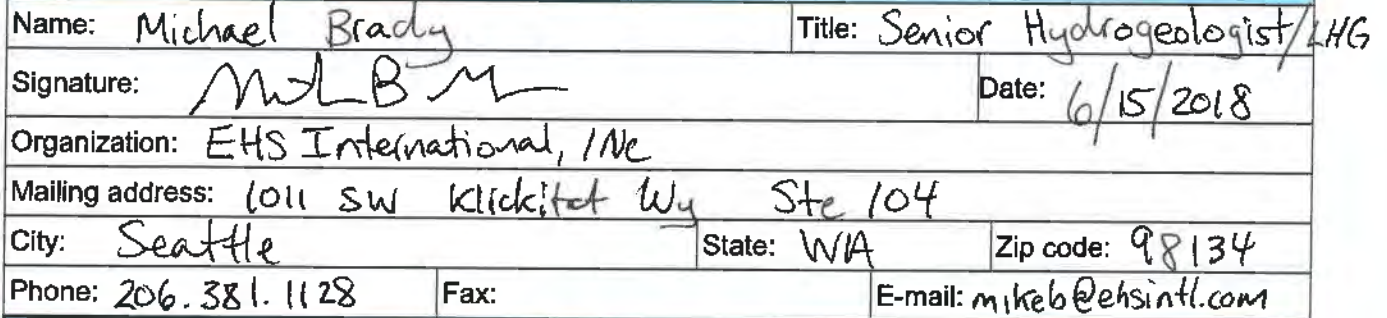 Name: Michael Brady Title: Senior Hydrogeologist/LHG
Signature: Date: 6/15/2018
Organization: EHS International, INc
Mailing address: 1011 SW Klickitat Wy Ste 104
City: Seattle State: WA Zip code: 98134
Phone: 206.381.1128 Fax: E-mail: mikeb@ehsintl.com